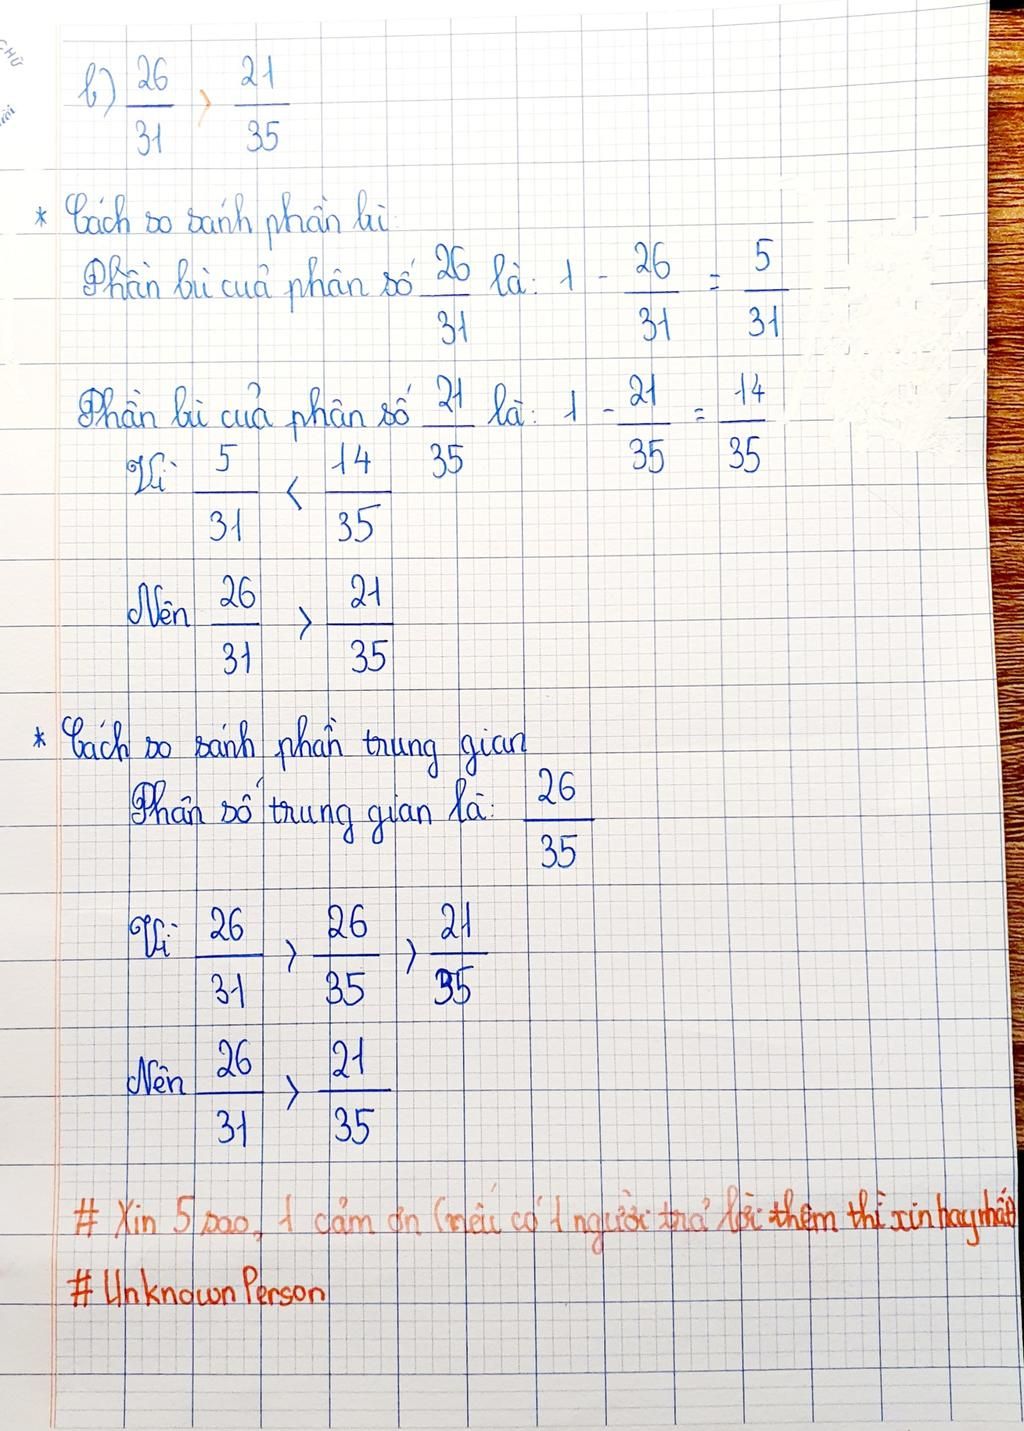 CHỮ
b) 26/31 > 21/35
* Cách so sánh phần bù
Phần bù của phân số 26/31 là: 1 - 26/31 = 5/31
Phần bù của phân số 21/35 là: 1 - 21/35 = 14/35
Vì 5/31 < 14/35
Nên 26/31 > 21/35
* Cách so sánh phần trung gian
Phân số trung gian là: 26/35
Vì 26/31 > 26/35 > 21/35
Nên 26/31 > 21/35
# Xin 5 sao, 1 cảm ơn (nếu có 1 người trả lời thêm thì xin hay nhất)
# UnknownPerson